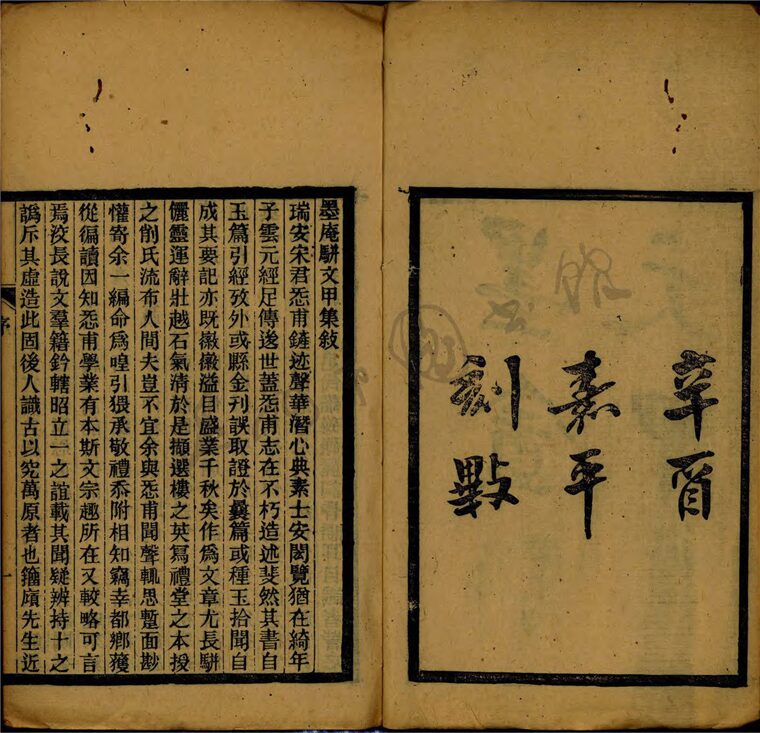 辛酉
嘉平
刻㪟
墨庵駢文甲集敘
瑞安宋君恷甫鏟迹聲華潛心典素士安閎覽猶在綺年
子雲元經足傳後世蓋恷甫志在不朽造述斐然其書自
玉篇引經攷外或縣金刊誤取證於曩篇或種玉拾聞自
成其要記亦既徽徽溢目盛業千秋矣作爲文章尤長駢
儷靈運辭壯越石氣清於是擷選樓之英寫禮堂之本授
之削氏流布人間夫豈不宜余與恷甫聞聲輒思蹔面尠
懽寄余一編命爲喤引猥承敬禮忝附相知竊幸都鄉蒦
從徧讀因知恷甫學業有本斯文宗趣所在又較略可言
焉汝長說文羣籍鈐轄昭立一之誼載其聞疑辨持十之
譌斥其虛造此固後人識古以究萬原者也籀廎先生近
序
一